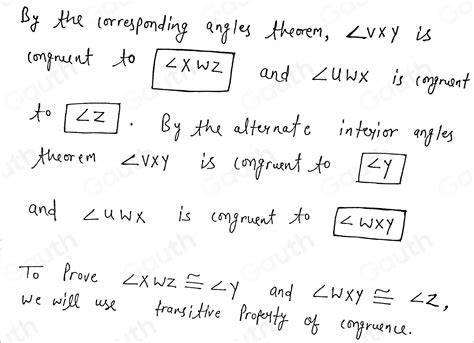 By the corresponding angles theorem, ∠VXY is
congruent to ∠XWZ and ∠UWX is congruent
to ∠Z . By the alternate interior angles
theorem ∠VXY is congruent to ∠Y
and ∠UWX is congruent to ∠WXY
To Prove ∠XWZ ≅ ∠Y and ∠WXY ≅ ∠Z,
we will use transitive Property of congruence.